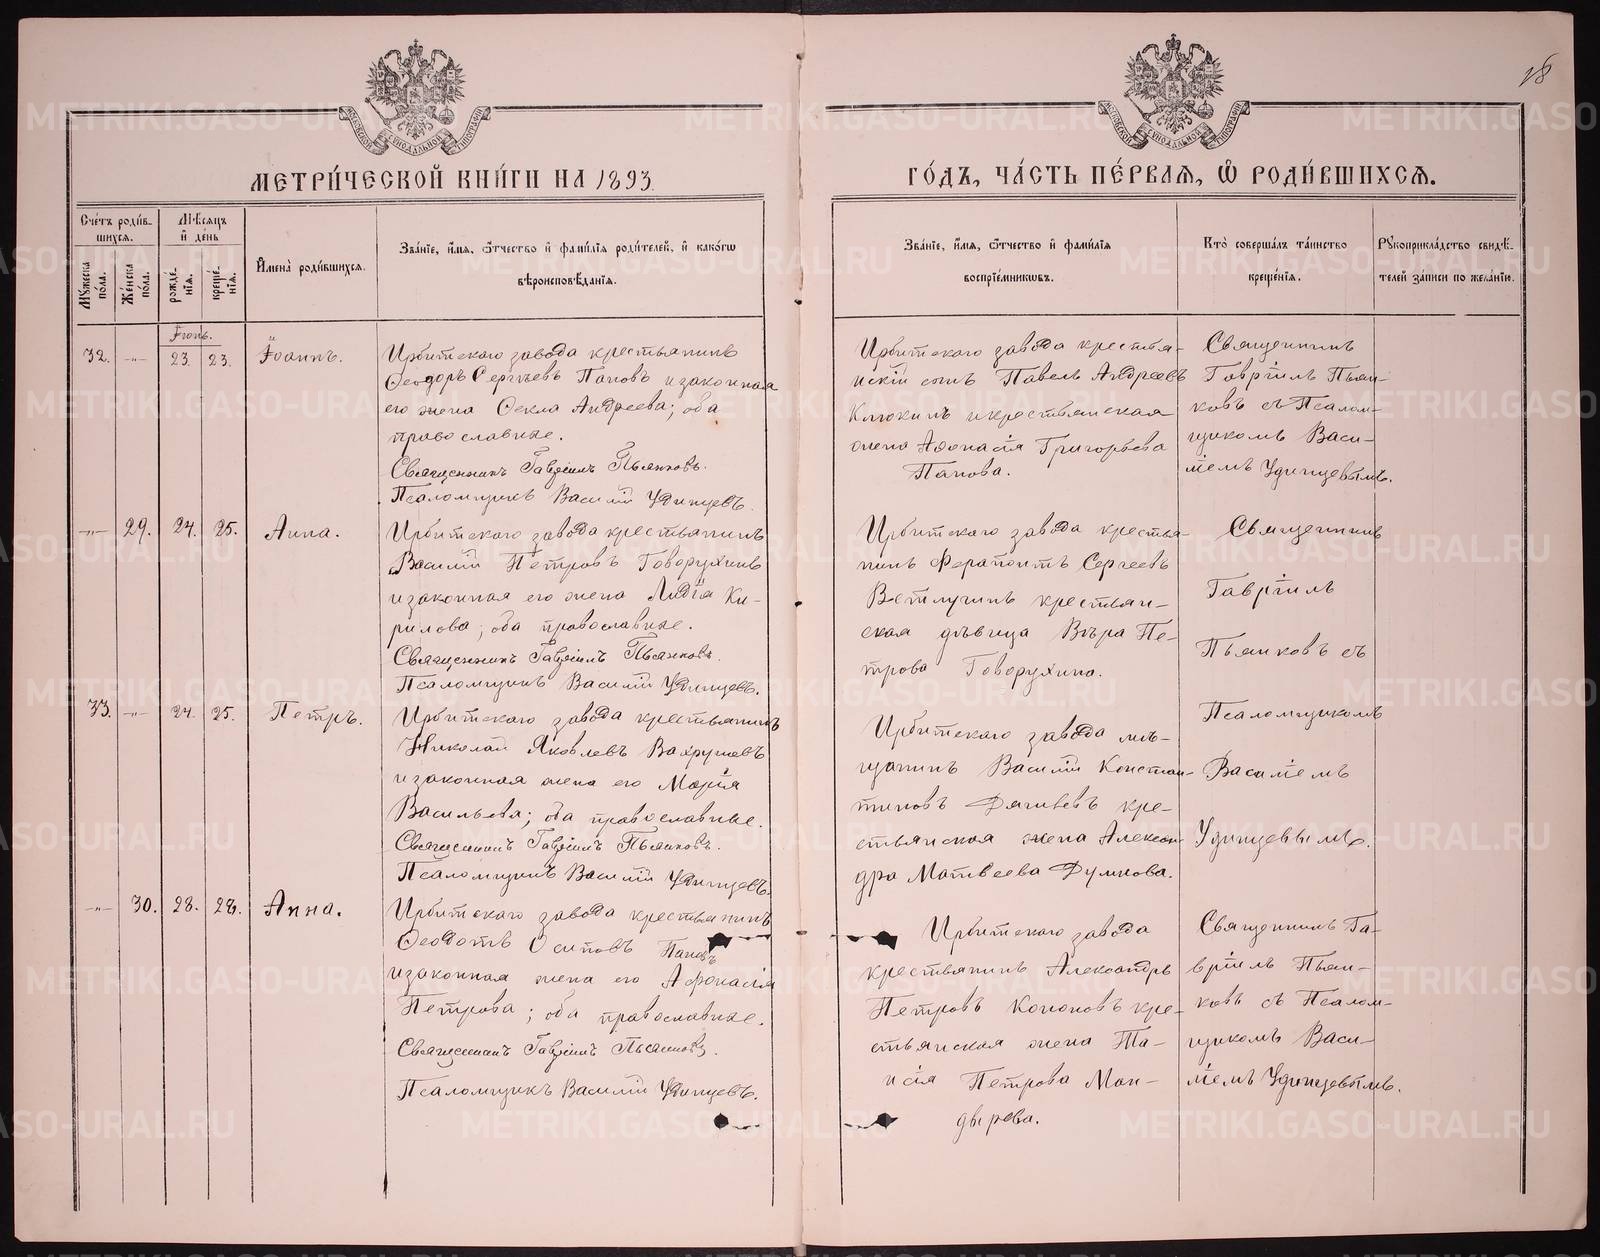 28
МЕТРИ́ЧЕСКОЙ КНИ́ГИ НА 1893
ГО́ДЪ, ЧА́СТЬ ПЕ́РВАЯ, Ѿ РОДИ́ВШИХСЯ.
Сче́тъ роди́в-
шихся.
Мꙋ́жеска по́ла.
Же́нска по́ла.
Мѣ́сяцъ
и҆ де́нь
рожде́-
нія.
креще́-
нія.
И҆мена̀ роди́вшихся.
Зва́ніе, и҆́мя, ѻ҆́тчество и҆ фами́лія роди́телей, и҆ како́гѡ
вѣроисповѣ́данія.
Зва́ніе, и҆́мя, ѻ҆́тчество и҆ фами́лія
воспріе́мникѡвъ.
Кто̀ соверша́лъ та́инство
креще́нія.
Рꙋкоприкла́дство свидѣ́-
телей за́писи по жела́нію.
Іюнь.
32. -„- 23. 23. Іоаннъ.
Ирбитскаго завода крестьянинъ
Ѳеодоръ Сергѣевъ Пановъ и законная
его жена Ѳекла Андреева; оба
православные.
Священникъ Гавріилъ Пьянковъ.
Псаломщикъ Василій Удинцевъ.
Ирбитскаго завода крестья-
нскій сынъ Павелъ Андреевъ
Клюкинъ и крестьянская
жена Аѳонасія Григорьева
Панова.
Священникъ
Гавріилъ Пьян-
ковъ съ Псалом-
щикомъ Васи-
ліемъ Удинцевымъ.
-„- 29. 24. 25. Анна.
Ирбитскаго завода крестьянинъ
Василій Петровъ Говорухинъ
и законная его жена Лидія Ки-
рилова; оба православные.
Священникъ Гавріилъ Пьянковъ.
Псаломщикъ Василій Удинцевъ.
Ирбитскаго завода крестья-
нинъ Ферапонтъ Сергеевъ
Ветлугинъ крестьян-
ская дѣвица Вѣра Пе-
трова Говорухина.
Священникъ
Гавріилъ
Пьянковъ съ
Псаломщикомъ
Василіемъ
Удинцевымъ.
33. -„- 24. 25. Петръ.
Ирбитскаго завода крестьянинъ
Николай Яковлевъ Вахрушевъ
и законная жена его Марія
Васильева; оба православные.
Священникъ Гавріилъ Пьянковъ.
Псаломщикъ Василій Удинцевъ.
Ирбитскаго завода мѣ-
щанинъ Василій Констан-
тиновъ Дягилевъ кре-
стьянская жена Алексан-
дра Матвеева Думнова.
-„- 30. 28. 28. Анна.
Ирбитскаго завода крестьянинъ
Ѳеодотъ Осиповъ Пановъ
и законная жена его Афонасія
Петрова; оба православные.
Священникъ Гавріилъ Пьянковъ.
Псаломщикъ Василій Удинцевъ.
Ирбитскаго завода
крестьянинъ Александръ
Петровъ Кононовъ кре-
стьянская жена Та-
исія Петрова Ман-
дырева.
Священникъ Га-
вріилъ Пьян-
ковъ съ Псалом-
щикомъ Васи-
ліемъ Удинцевымъ.
METRIKI.GASO-URAL.RU